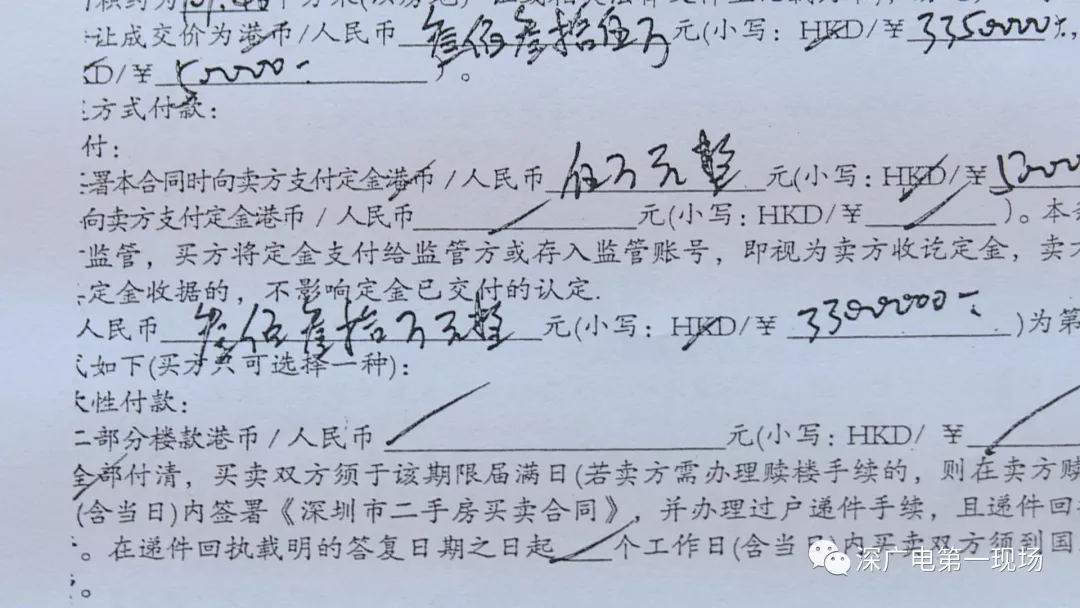 让成交价为港币/人民币 叁佰叁拾伍万 元(小写：HKD/￥ 3350000
D/￥ 50000 )。
方式付款：
付：
署本合同时向卖方支付定金港币/人民币 伍万元整 元(小写：HKD/￥ 50000
向卖方支付定金港币/人民币 元(小写：HKD/￥ )。本
监管，买方将定金支付给监管方或存入监管账号，即视为卖方收讫定金，卖
定金收据的，不影响定金已交付的认定.
人民币 叁佰叁拾万元整 元(小写：HKD/￥ 3300000 )为第
如下(买方只可选择一种)：
性付款：
二部分楼款港币/人民币 元(小写：HKD/ ￥
全部付清，买卖双方须于该期限届满日(若卖方需办理赎楼手续的，则在卖方赎
(含当日)内签署《深圳市二手房买卖合同》，并办理过户递件手续，且递件回
。在递件回执载明的答复日期之日起 个工作日(含当日)内买卖双方须到国
深广电第一现场